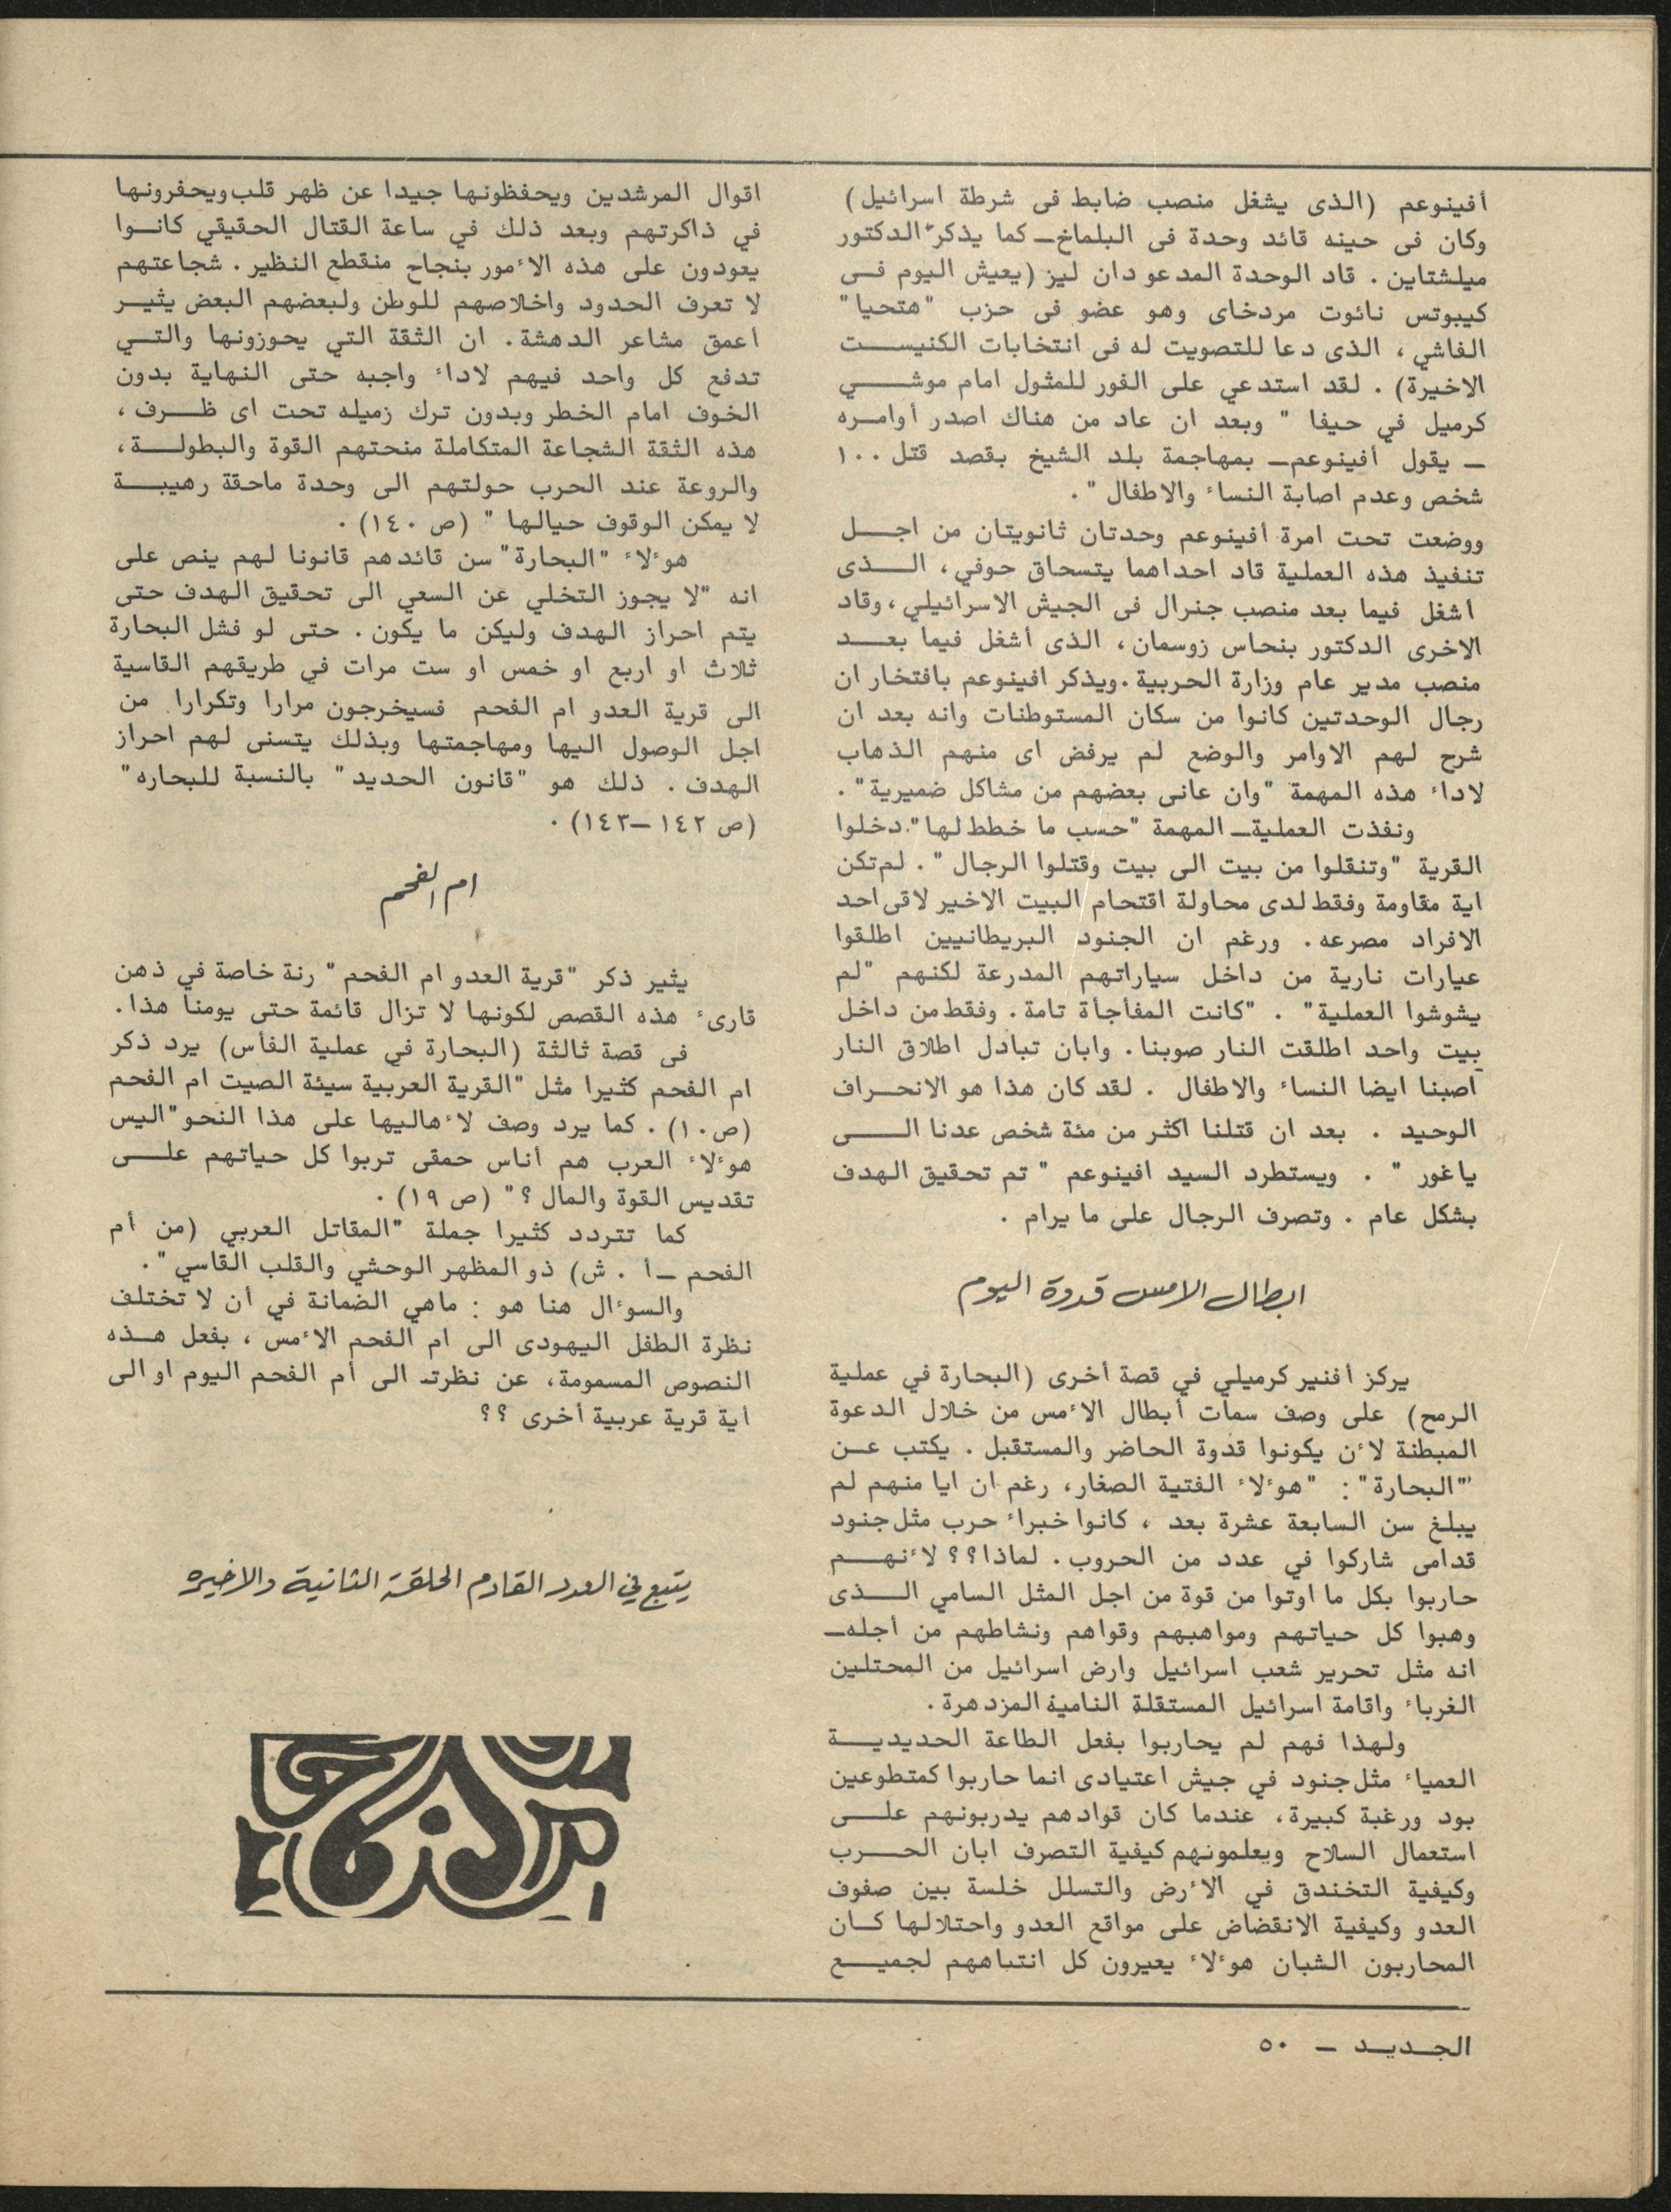 أفينوعم (الذى يشغل منصب ضابط فى شرطة اسرائيل)
وكان فى حينه قائد وحدة فى البلماخ ـ كما يذكر الدكتور
ميلشتاين . قاد الوحدة المدعو دان ليز (يعيش اليوم فــى
كيبوتس نائوت مردخاى وهو عضو فى حزب "هتحيا"
الفاشي ، الذى دعا للتصويت له فى انتخابات الكنيســـت
الاخيرة) . لقد استدعي على الفور للمثول امام موشـــــي
كرميل في حيفا " وبعد ان عاد من هناك اصدر أوامــره
ـ يقول أفينوعم ـ بمهاجمة بلد الشيخ بقصد قتل ١٠٠
شخص وعدم اصابة النساء والاطفال " .
ووضعت تحت امرة أفينوعم وحدتان ثانويتان من اجـــل
تنفيذ هذه العملية قاد احداهما يتسحاق حوفي ، الـــذى
أشغل فيما بعد منصب جنرال فى الجيش الاسرائيلي ، وقاد
الاخرى الدكتور بنحاس زوسمان ، الذى أشغل فيما بعـــد
منصب مدير عام وزارة الحربية . ويذكر افينوعم بافتخار ان
رجال الوحدتين كانوا من سكان المستوطنات وانه بعد ان
شرح لهم الاوامر والوضع لم يرفض اى منهم الذهاب
لاداء هذه المهمة "وان عانى بعضهم من مشاكل ضميرية" .
ونفذت العملية ـ المهمة "حسب ما خطط لها". دخلوا
القرية "وتنقلوا من بيت الى بيت وقتلوا الرجال" . لم تكن
اية مقاومة وفقط لدى محاولة اقتحام البيت الاخير لاقى احد
الافراد مصرعه . ورغم ان الجنود البريطانيين اطلقوا
عيارات نارية من داخل سياراتهم المدرعة لكنهم "لم
يشوشوا العملية" . "كانت المفأجأة تامة . وفقط من داخل
بيت واحد اطلقت النار صوبنا . وابان تبادل اطلاق النار
اصبنا ايضا النساء والاطفال . لقد كان هذا هو الانحــراف
الوحيد . بعد ان قتلنا اكثر من مئة شخص عدنا الـــــى
ياغور " . ويستطرد السيد افينوعم " تم تحقيق الهدف
بشكل عام . وتصرف الرجال على ما يرام .
ابطال الامس قدوة اليوم
يركز أفنير كرميلي في قصة أخرى (البحارة في عملية
الرمح) على وصف سمات أبطال الأمس من خلال الدعوة
المبطنة لأن يكونوا قدوة الحاضر والمستقبل . يكتب عــن
"البحارة" : "هوءلاء الفتية الصغار ، رغم ان ايا منهم لم
يبلغ سن السابعة عشرة بعد ، كانوا خبراء حرب مثل جنود
قدامى شاركوا في عدد من الحروب . لماذا ؟؟ لأنهـــم
حاربوا بكل ما اوتوا من قوة من اجل المثل السامي الـــذى
وهبوا كل حياتهم ومواهبهم وقواهم ونشاطهم من أجله ـ
انه مثل تحرير شعب اسرائيل وارض اسرائيل من المحتلين
الغرباء واقامة اسرائيل المستقلة النامية المزدهرة .
ولهذا فهم لم يحاربوا بفعل الطاعة الحديديـــة
العمياء مثل جنود في جيش اعتيادى انما حاربوا كمتطوعين
بود ورغبة كبيرة ، عندما كان قوادهم يدربونهم علـــى
استعمال السلاح ويعلمونهم كيفية التصرف ابان الحـــرب
وكيفية التخندق في الأرض والتسلل خلسة بين صفوف
العدو وكيفية الانقضاض على مواقع العدو واحتلالها كــان
المحاربون الشبان هوءلاء يعيرون كل انتباههم لجميـــع
اقوال المرشدين ويحفظونها جيدا عن ظهر قلب ويحفرونها
في ذاكرتهم وبعد ذلك في ساعة القتال الحقيقي كانــوا
يعودون على هذه الأمور بنجاح منقطع النظير . شجاعتهم
لا تعرف الحدود واخلاصهم للوطن ولبعضهم البعض يثيــر
أعمق مشاعر الدهشة . ان الثقة التي يحوزونها والتــي
تدفع كل واحد فيهم لاداء واجبه حتى النهاية بدون
الخوف امام الخطر وبدون ترك زميله تحت اى ظــرف ،
هذه الثقة الشجاعة المتكاملة منحتهم القوة والبطولــة ،
والروعة عند الحرب حولتهم الى وحدة ماحقة رهيبـــة
لا يمكن الوقوف حيالها " (ص ١٤٠) .
هوءلاء "البحارة" سن قائدهم قانونا لهم ينص على
انه "لا يجوز التخلي عن السعي الى تحقيق الهدف حتى
يتم احراز الهدف وليكن ما يكون . حتى لو فشل البحارة
ثلاث او اربع او خمس او ست مرات في طريقهم القاسية
الى قرية العدو ام الفحم فسيخرجون مرارا وتكرارا من
اجل الوصول اليها ومهاجمتها وبذلك يتسنى لهم احراز
الهدف . ذلك هو "قانون الحديد" بالنسبة للبحاره"
(ص ١٤٢ ـ ١٤٣) .
ام الفحم
يثير ذكر "قرية العدو ام الفحم" رنة خاصة في ذهن
قارىء هذه القصص لكونها لا تزال قائمة حتى يومنا هذا .
فى قصة ثالثة (البحارة في عملية الفأس) يرد ذكر
ام الفحم كثيرا مثل "القرية العربية سيئة الصيت ام الفحم
(ص١٠) . كما يرد وصف لأهاليها على هذا النحو "اليس
هوءلاء العرب هم أناس حمقى تربوا كل حياتهم علـــى
تقديس القوة والمال ؟" (ص ١٩) .
كما تتردد كثيرا جملة "المقاتل العربي (من أم
الفحم ـ أ . ش) ذو المظهر الوحشي والقلب القاسي" .
والسوءال هنا هو : ماهي الضمانة في أن لا تختلف
نظرة الطفل اليهودى الى ام الفحم الأمس ، بفعل هــذه
النصوص المسمومة ، عن نظرتـ الى أم الفحم اليوم او الى
أية قرية عربية أخرى ؟؟
يتبع في العدد القادم الحلقة الثانية والاخيره
الجــديــد ـ ٥٠